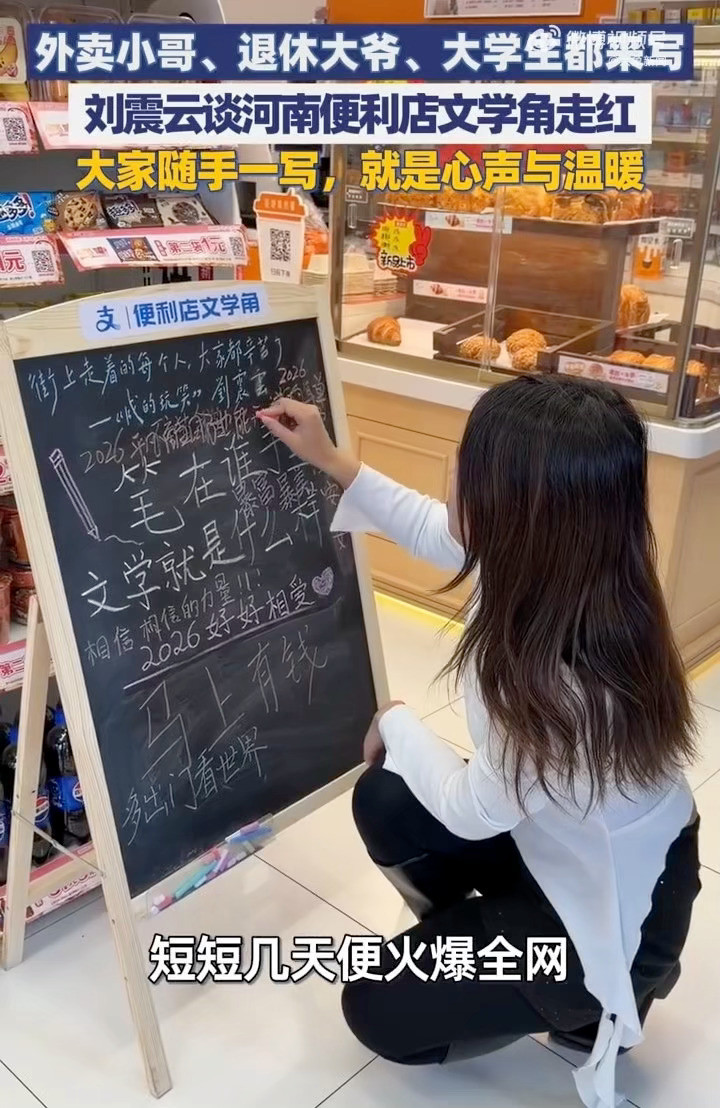 外卖小哥、退休大爷、大学生都来写
刘震云谈河南便利店文学角走红
大家随手一写，就是心声与温暖
微博视频号
新品上市
第二袋1元
1元
支 | 便利店文学角
街上走着的每个人，大家都辛苦了
—《咸的玩笑》 劉震雲
2026
2026 平凡
笔在谁手
文学就是什么
暴富暴富
相信 相信的力量!!!
2026 好好相爱
马上有钱
多出门看世界
短短几天便火爆全网